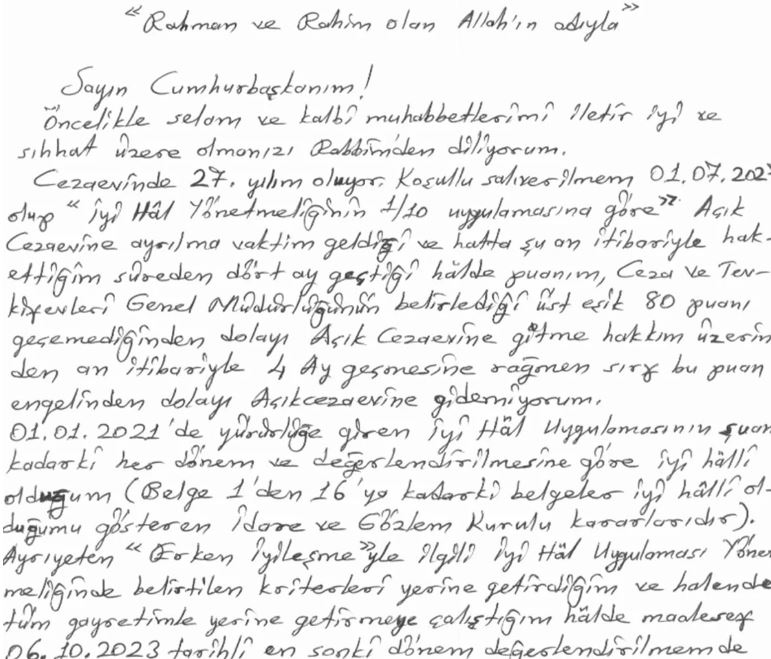 “Rahman ve Rahim olan Allah'ın adıyla”
Sayın Cumhurbaşkanım!
Öncelikle selam ve kalbî muhabbetlerimi iletir iyi ve
sıhhat üzere olmanızı Rabbim'den diliyorum.
Cezaevinde 27. yılım oluyor. Koşullu salıverilmem 01.07.202
olup “İyi Hâl Yönetmeliğinin 1/10 uygulamasına göre” Açık
Cezaevine ayrılma vaktim geldiği ve hatta şu an itibariyle hak-
ettiğim süreden dört ay geçtiği hâlde puanım, Ceza ve Tev-
kifevleri Genel Müdürlüğünün belirlediği üst eşik 80 puanı
geçemediğinden dolayı Açık Cezaevine gitme hakkım üzerin
den an itibariyle 4 Ay geçmesine rağmen sırf bu puan
engelinden dolayı Açıkcezaevine gidemiyorum.
01.01.2021'de yürürlüğe giren İyi Hâl Uygulamasının şuan
kadarki her dönem ve değerlendirilmesine göre iyi hâlli
olduğum (Belge 1'den 16'ya kadarki belgeler iyi hâlli ol-
duğumu gösteren İdare ve Gözlem Kurulu kararlarıdır).
Ayrıyeten “Erken İyileşme”yle ilgili İyi Hâl Uygulaması Yönet
meliğinde belirtilen kriterleri yerine getirdiğim ve halende
tüm gayretimle yerine getirmeye çalıştığım hâlde maalesef
06.10.2023 tarihli en sonki dönem değerlendirilmemde